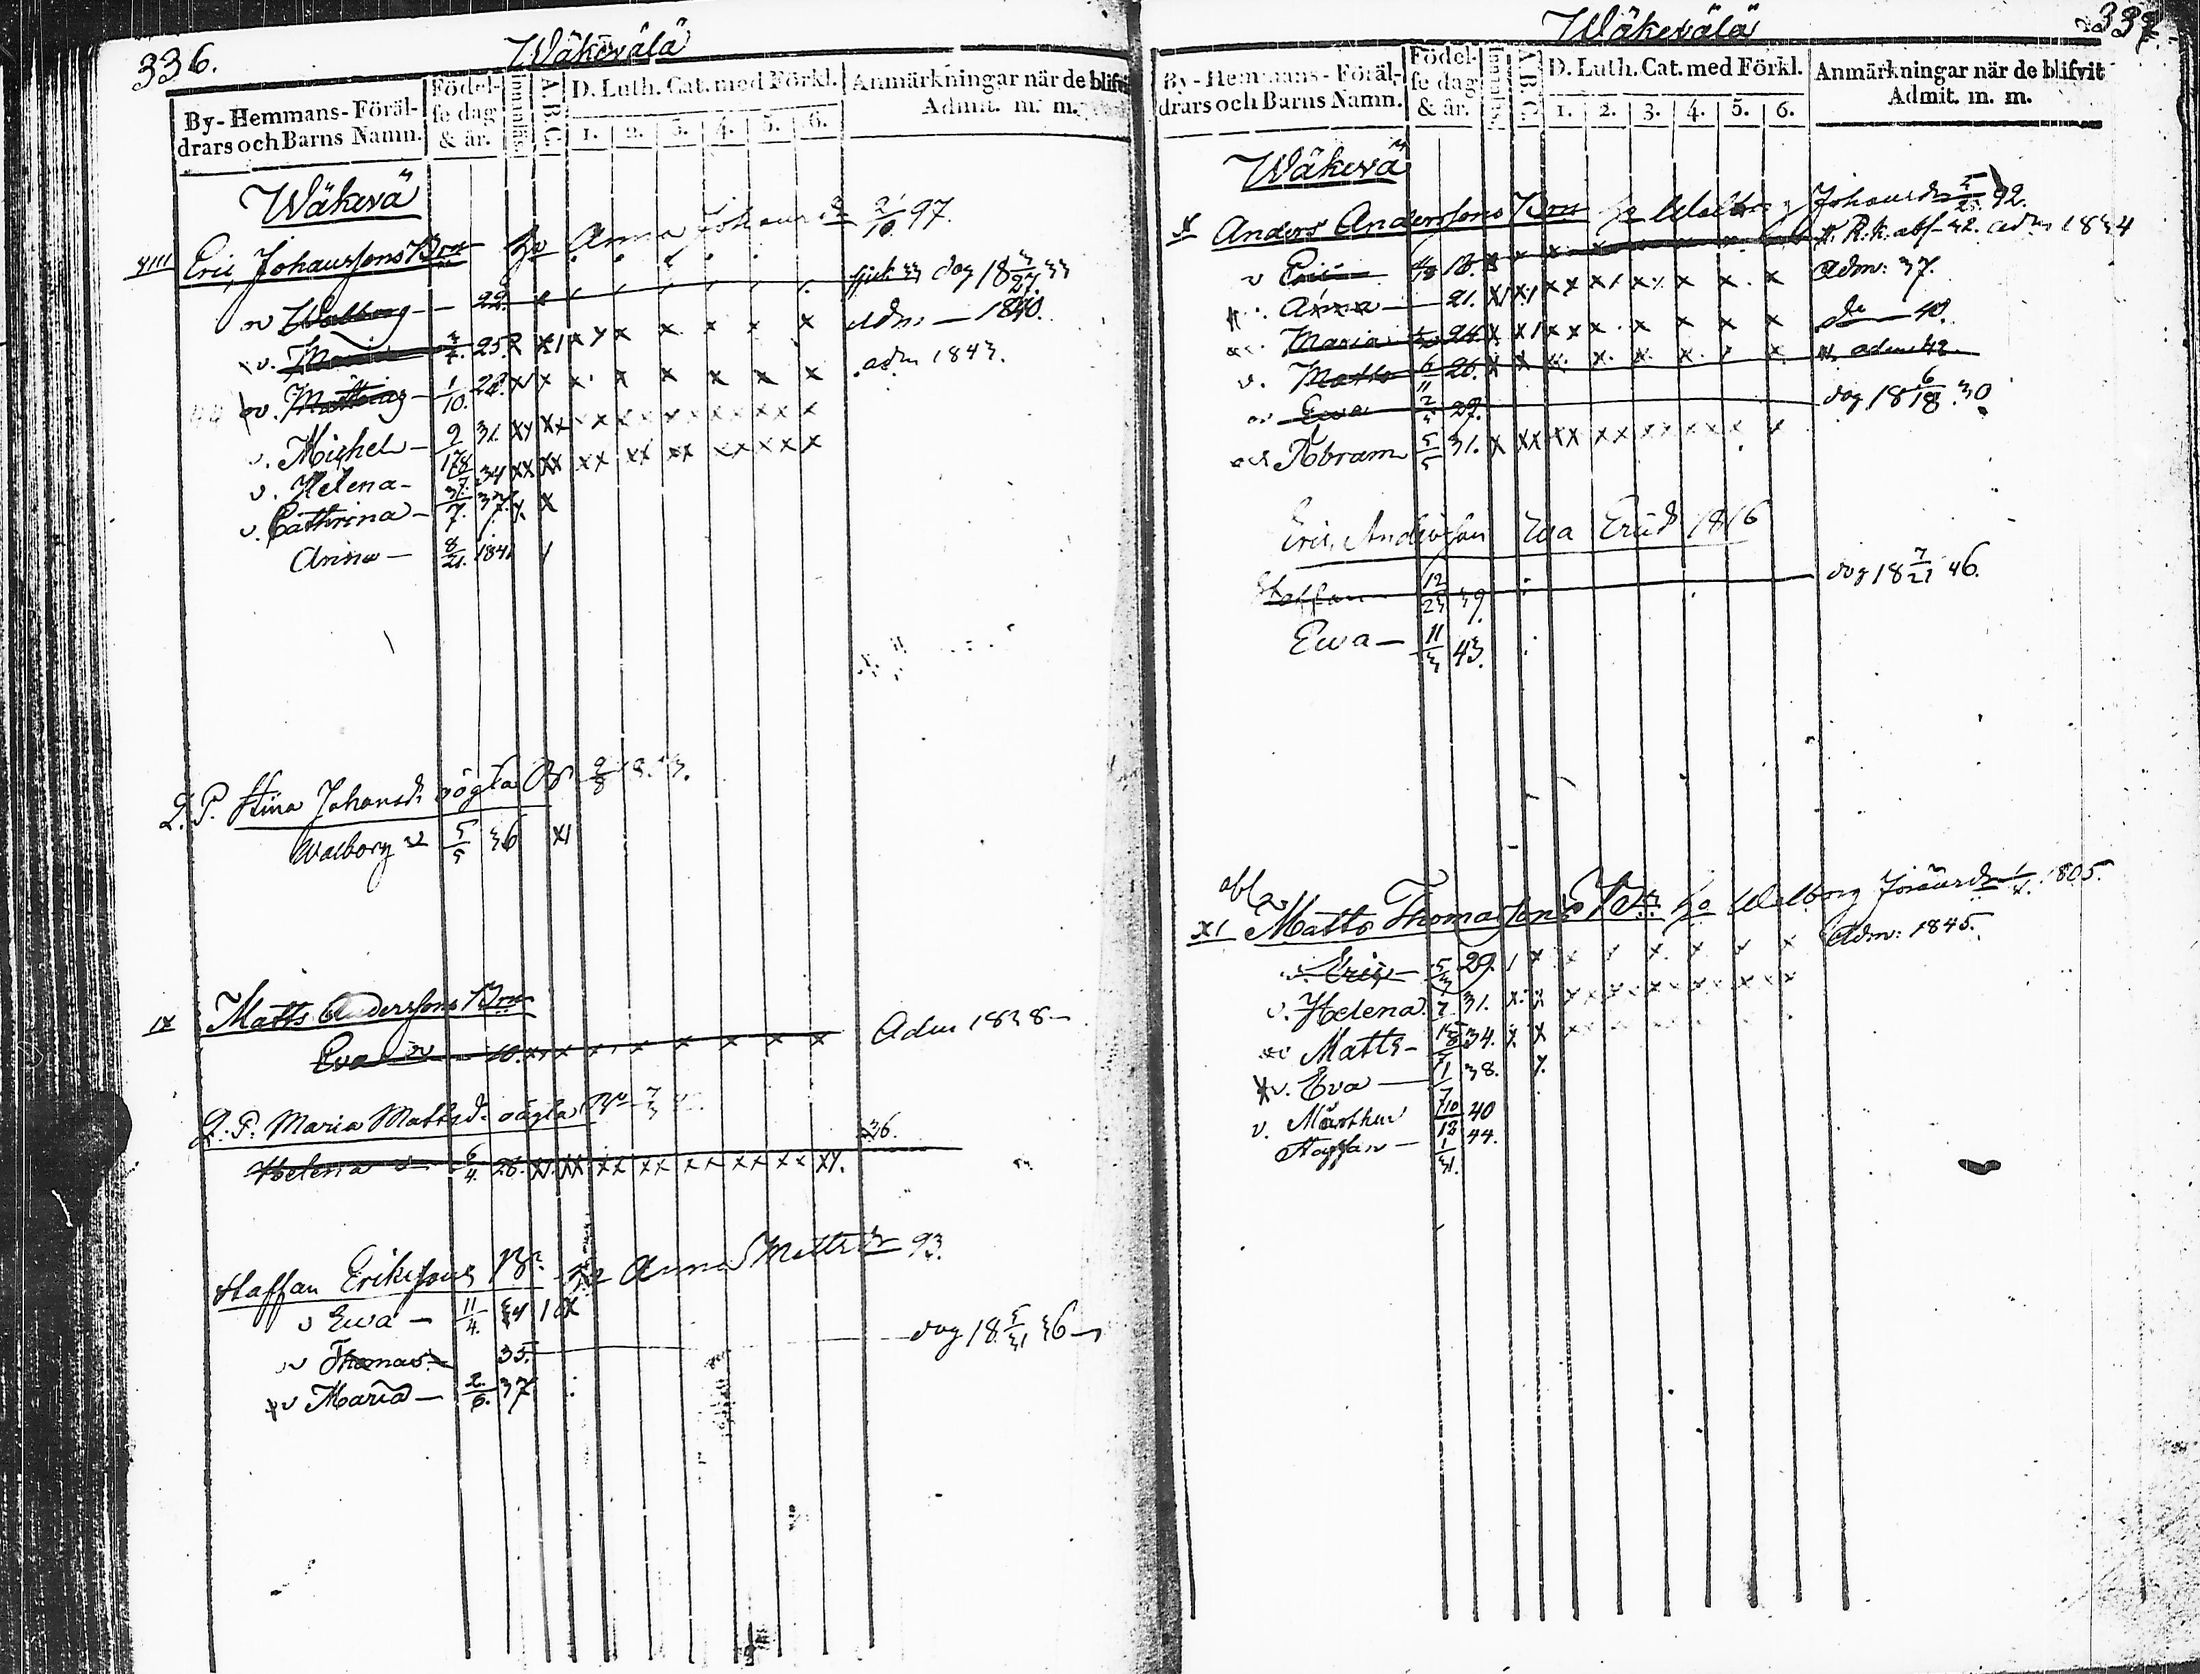 336.
Wäkevälä
By-Hemmans-Föräldrars och Barns Namn.
Födelse dag & år.
Innanläs.
A B C.
D. Luth. Cat. med Förkl.
1. 2. 3. 4. 5. 6.
Anmärkningar när de blifvit Admit. m. m.
Wäkevä
VIII Eric Johanssons Brn hu Anna Johansdr 2/10 97.
v Walborg — 22. dog 18 3/27 33
v. Maria 25. Adm — 1840.
v. Walborg 1/10 28. adm 1843.
v. Michel — 9/17 31.
v. Helena — 34
v. Cathrina — 7. 37.
Anna — 8/21. 1841
Q. P. Stina Johansdr oägta
Walborg v 5/5 36
IX Matts Anderssons Brn
Eva v Adm 1838 —
Q. P. Maria Mattsdr oägta
Helena v 6/4 28. 36.
Staffan Erikssons hu Anna Mattsdr 93.
v Ewa — 11/4. 34
v Thomas — 35. dog 18 5/31 36 —
v Maria — 2/6. 37
Wäkevälä
337.
By-Hemmans-Föräldrars och Barns Namn.
Födelse dag & år.
Innanläs.
A B C.
D. Luth. Cat. med Förkl.
1. 2. 3. 4. 5. 6.
Anmärkningar när de blifvit Admit. m. m.
Wäkevä
X Anders Anderssons Brn hu Walborg Johansdr 92.
v Eric 18. adm 1834
Anna — 21. Adm: 37.
Maria 24. do — 40.
v. Matts 6/11 26. adm 42.
Ewa 27. dog 18 6/18 30
Abram 5/5 31.
Eric Andersson Eva Ericsdr 1816
Staffan 12/23 39. dog 18 7/21 46.
Ewa — 11/3 43.
XI Matts Thomassons hu Walborg 1805.
v. Eric — 5/3 29. Adm: 1845.
v. Helena 31.
Matts — 34.
v. Eva — 1/7 38.
v. Marthin 40
Staffan — 1/31. 44.